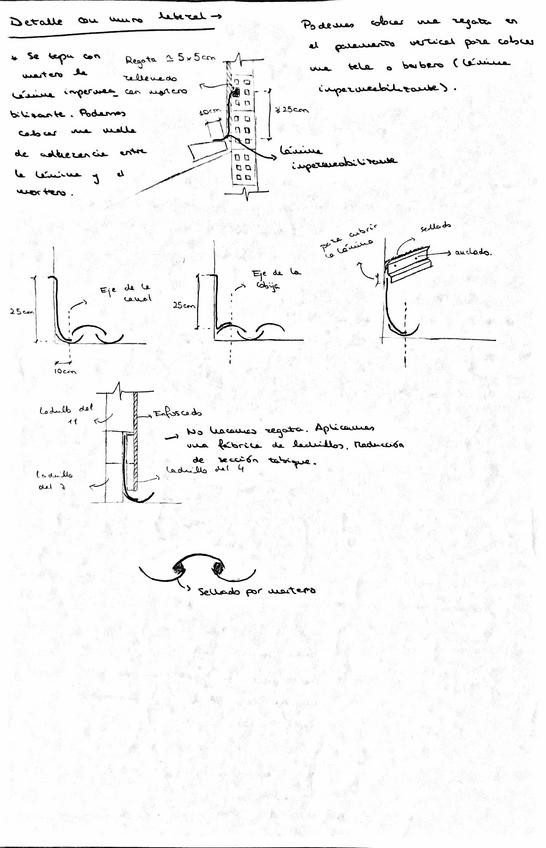 Detalle con muro lateral →
Podemos colocar una regata en
el paramento vertical para colocar
una tela o barbero (lámina
impermeabilizante).
* Se tapa con
mortero la
lámina impermea_
bilizante. Podemos
colocar una malla
de adherencia entre
la lámina y el
mortero.
Regata ≃ 5x5cm
rellenado
con mortero
10cm
≥25cm
lámina
impermeabilizante
25cm
Eje de la
canal
10cm
25cm
Eje de la
cobija
para cubrir
la lámina
sellado
anclado.
Ladrillo del
11
Enfoscado
→ No hacemos regata. Aplicamos
una fábrica de ladrillos. Reducción
de sección tabique.
Ladrillo
del 7
Ladrillo del 4
Sellado por mortero